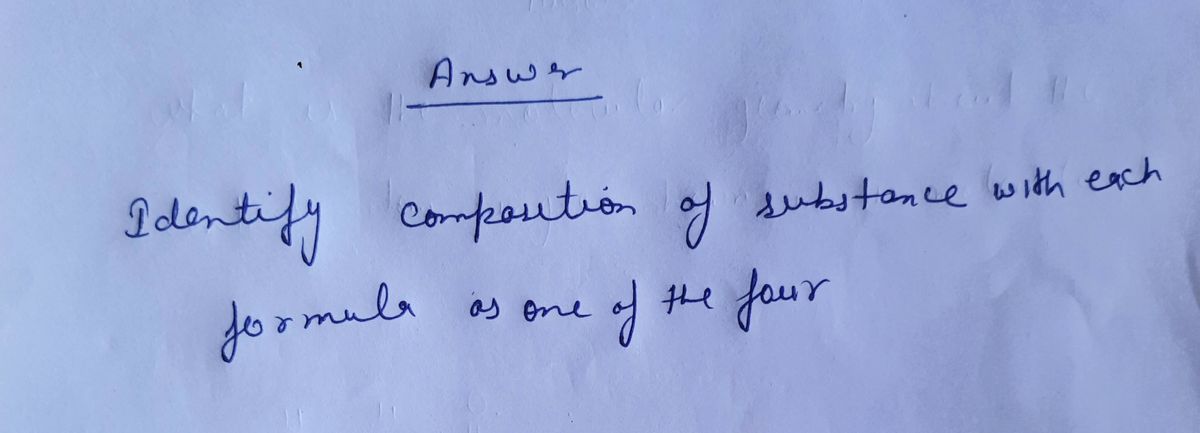 Answer
Identify composition of substance with each
formula as one of the four